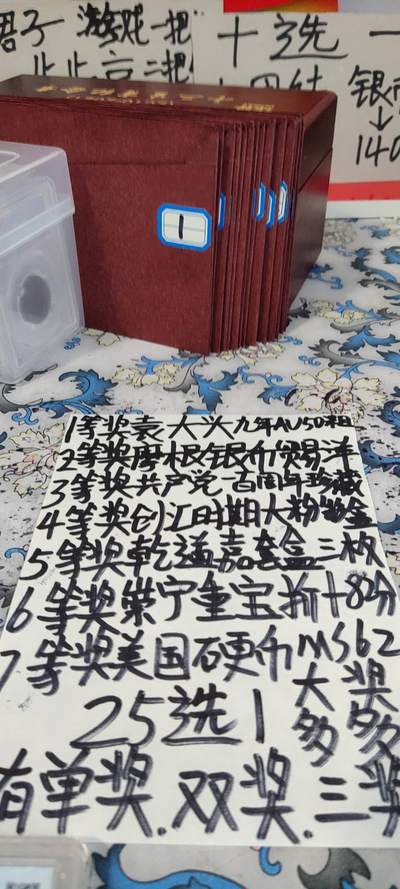 君子 游戏一把
十选一
银币
↓
140
1
1等奖袁大头九年AU50粗
2等奖摩根银币贸易洋
3等奖共产党百周年珍藏
4等奖创江时期大粉盒
5等奖乾道嘉套盒三枚
6等奖崇宁重宝折十82分
7等奖美国硬币MS62
25选1 大奖多多
有单奖.双奖.三奖